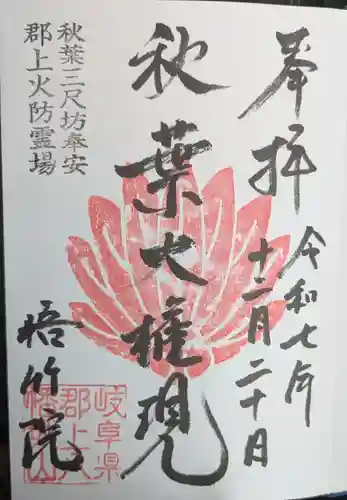 奉拝
令和七年
十二月二十日
秋葉大権現
秋葉三尺坊奉安
郡上火防霊場
悟竹院
岐阜県
郡上